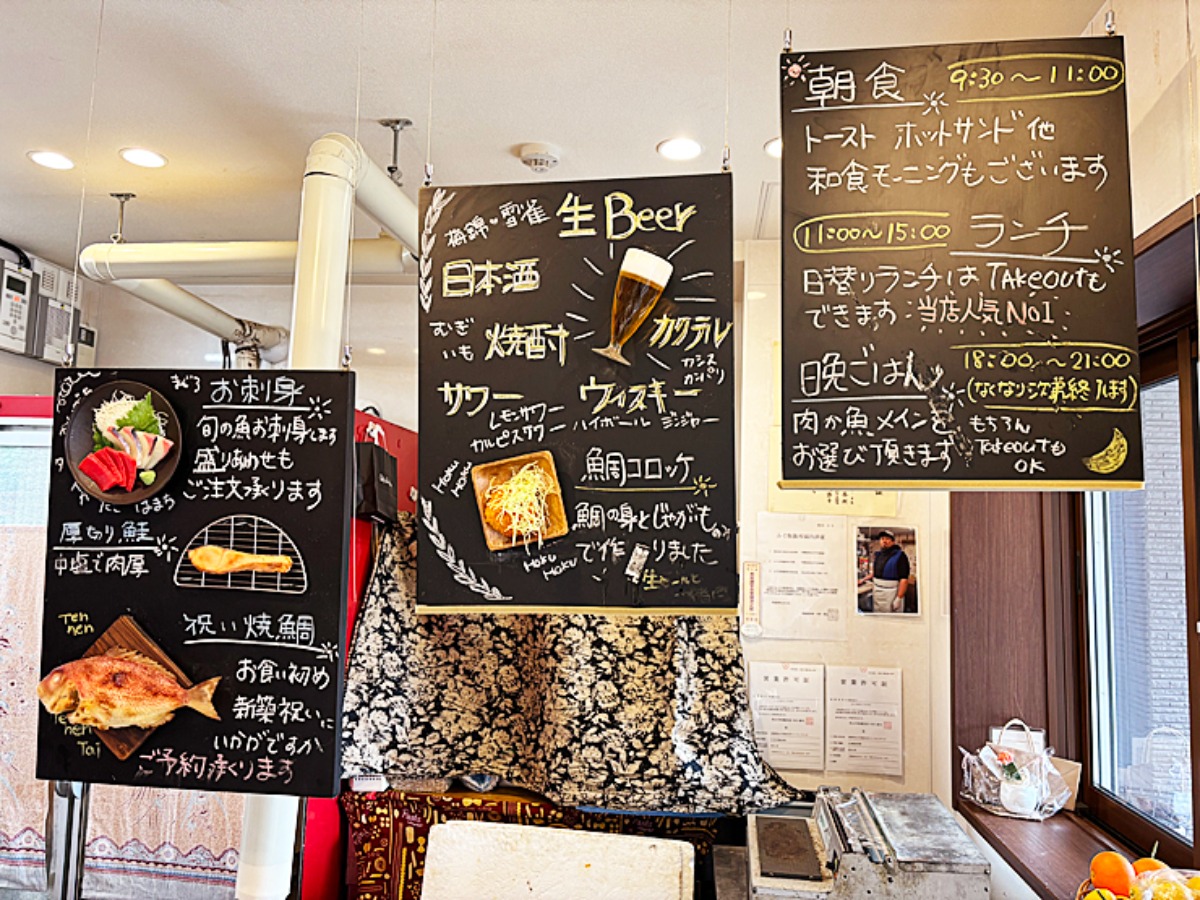 まぐろ
お刺身
旬の魚お刺身します
盛りあわせも
ご注文承ります
はまち
厚切り鮭
中塩で肉厚
Ten
nen
Ten
nen
Tai
祝い焼鯛
お食い初め
新築祝いに
いかがですか
ご予約承ります
梅錦・雪雀
生Beer
日本酒
むぎ
いも
焼酎
カクテル
カシス
カンパリ
サワー
レモンサワー
カルピスサワー
ウィスキー
ハイボール ジンジャー
Hoku
Hoku
鯛コロッケ
鯛の身とじゃがいも
で作りました
Hoku
Hoku
朝食 9:30〜11:00
トースト ホットサンド他
和食モーニングもございます
11:00〜15:00 ランチ
日替りランチは TAkeoutも
できます 当店人気No1
晩ごはん
18:00〜21:00
肉か魚メインを
お選び頂きます
もちろん
Takeoutも
OK
営業許可証
営業許可証